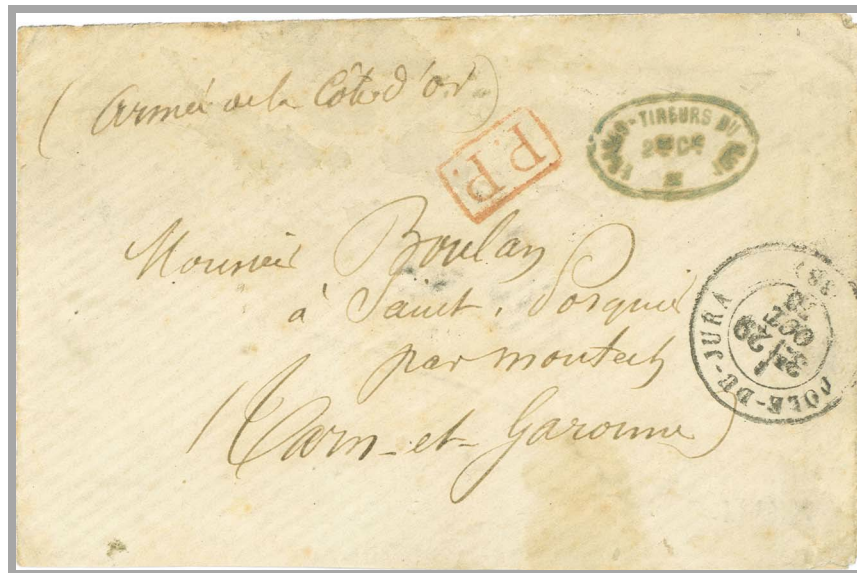 (Armée de la Côte d'or)
P.P.
FRANCS-TIREURS DU
Monsieur Boulan
à Saint. Porquier
par montech
(Tarn-et-Garonne)
DOLE-DU-JURA (38)
2E
29
OCT